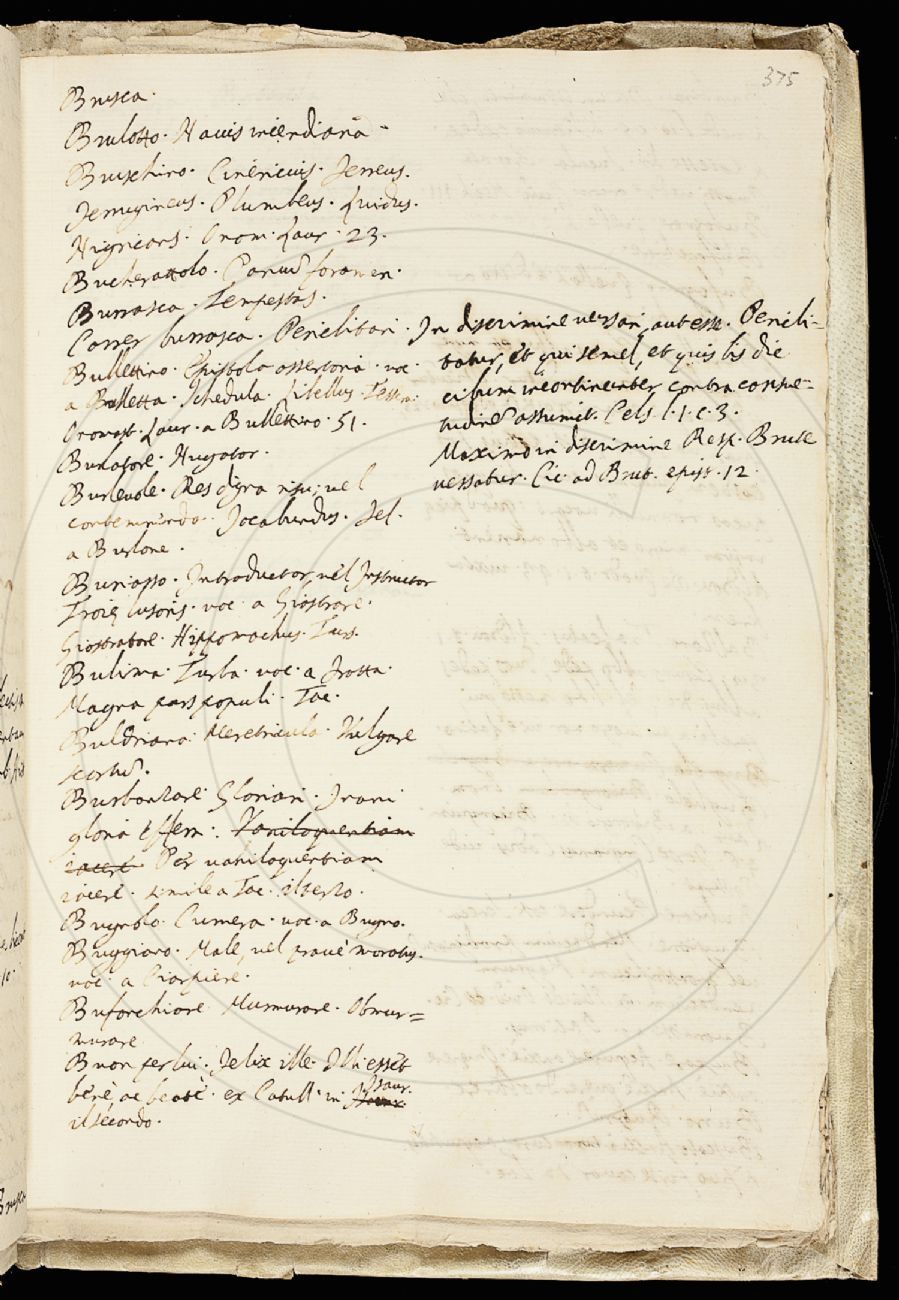 375
Brusca.
Brulotto. Navis incendiaria.
Bruschino. Cinericius. Ferreus.
Ferrugineus. Plumbeus. Lividus.
Nigricans. Onom. Laur. 23.
Bucherattolo. Parvũ foramen.
Burrasca. Tempestas.
Correr burrasca. Periclitari. In discrimine versari, aut esse. Pericli=
tatur, et qui semel, et qui bis die
cibum incontinenter contra consue=
tudinẽ assumit. Cels. l. 1. c. 3.
Maximo in discrimine Resp. Brute
versatur. Cic. ad Brut. epist. 12.
Bullettino. Epistola assertoria. voc.
a Bulletta. Schedula. Libellus. Tessera.
Onomast. Laur. a Bullettino. 51.
Burlatore. Nugator.
Burlevole. Res digna risu, vel
contemnenda. Jocabundus. Fel.
a Burlone.
Buriasso. Introductor, vel Instructor
Troię lusoris. voc. a Giostrare.
Giostratore. Hippomachus. Turs.
Bulima. Turba. voc. a Frotta.
Magna pars populi. Tac.
Buldriana. Meretricula. Vulgare
scortũ.
Burbanzare. Gloriari. Inani
gloria efferri. Vaniloquentiam
iacere. Per vaniloquentiam
iacere. simile a Tac. il terzo.
Bugnolo. Cumera. voc. a Bugno.
Buggiaro. Male, vel prave moratus.
voc. a
Buforchiare. Murmurare. Obmur=
murare
Buon per lui. Felix ille. Illi esset
bene, ac beate. ex Catull. in Isaur.
il secondo.